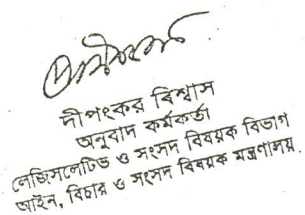 দীপংকর বিশ্বাস
অনুবাদ কর্মকর্তা
লেজিসলেটিভ ও সংসদ বিষয়ক বিভাগ
আইন, বিচার ও সংসদ বিষয়ক মন্ত্রণালয়।